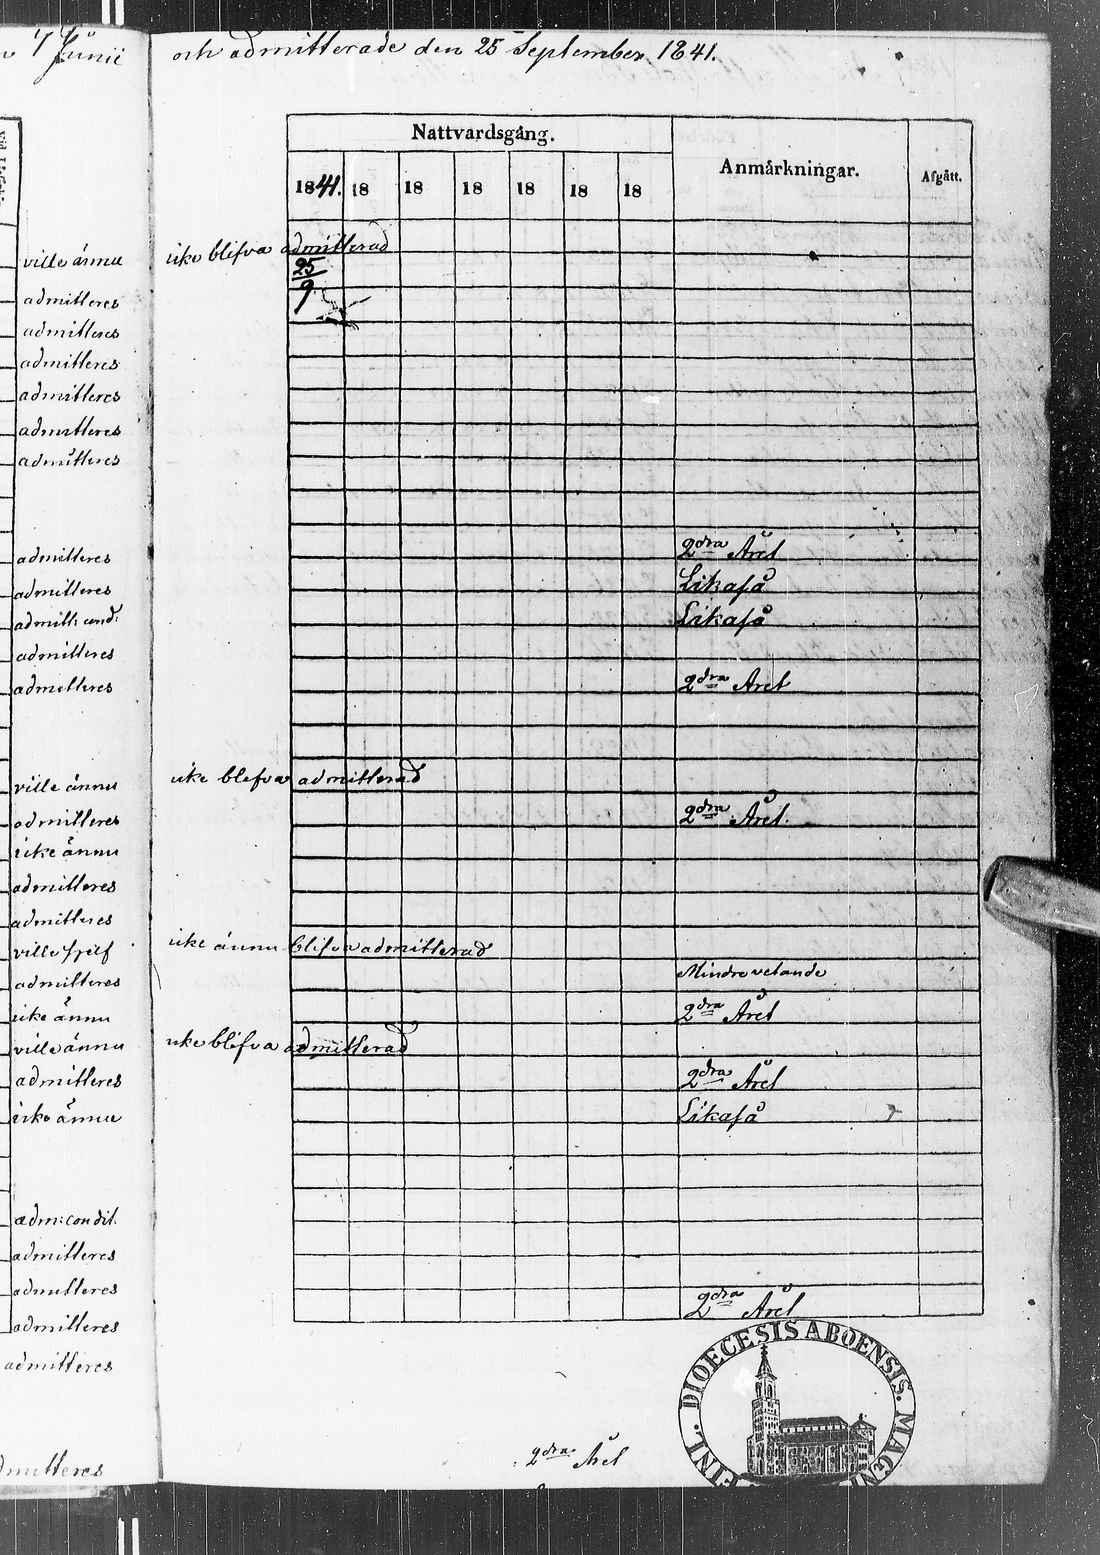 7 Junii och admitterade den 25 September 1841.
Nattvardsgång.
Anmärkningar.
Afgått.
1841. 18 18 18 18 18 18
ville ännu icke blifva admitterad
25
9
admitteres
admitteres
admitteres
admitteres
admitteres
admitteres
admitteres 2dra Året
admitteres Likaså
admitt: cond: Likaså
admitteres
admitteres 2dra Året
ville ännu icke blifva admitterad
admitteres 2dra Året.
icke ännu
admitteres
admitteres
ville sjelf icke ännu blifva admitterad
admitteres Mindre vetande
icke ännu 2dra Året
ville ännu icke blifva admitterad
admitteres 2dra Året
icke ännu Likaså
adm: condit.
admitteres
admitteres
admitteres 2dra Året
admitteres
DIOECESIS ABOENSIS. MAGNI FINL.
admitteres 2dra Året